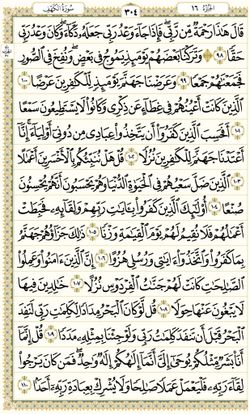 الجزء ١٦ ٣٠٤ سورة الكهف
قَالَ هَٰذَا رَحْمَةٌ مِّن رَّبِّي فَإِذَا جَاءَ وَعْدُ رَبِّي جَعَلَهُ دَكَّاءَ وَكَانَ وَعْدُ رَبِّي
حَقًّا ٩٨ وَتَرَكْنَا بَعْضَهُمْ يَوْمَئِذٍ يَمُوجُ فِي بَعْضٍ وَنُفِخَ فِي الصُّورِ
فَجَمَعْنَاهُمْ جَمْعًا ٩٩ وَعَرَضْنَا جَهَنَّمَ يَوْمَئِذٍ لِّلْكَافِرِينَ عَرْضًا ١٠٠
الَّذِينَ كَانَتْ أَعْيُنُهُمْ فِي غِطَاءٍ عَن ذِكْرِي وَكَانُوا لَا يَسْتَطِيعُونَ سَمْعًا
١٠١ أَفَحَسِبَ الَّذِينَ كَفَرُوا أَن يَتَّخِذُوا عِبَادِي مِن دُونِي أَوْلِيَاءَ إِنَّا
أَعْتَدْنَا جَهَنَّمَ لِلْكَافِرِينَ نُزُلًا ١٠٢ قُلْ هَلْ نُنَبِّئُكُم بِالْأَخْسَرِينَ أَعْمَالًا
١٠٣ الَّذِينَ ضَلَّ سَعْيُهُمْ فِي الْحَيَاةِ الدُّنْيَا وَهُمْ يَحْسَبُونَ أَنَّهُمْ يُحْسِنُونَ
صُنْعًا ١٠٤ أُولَٰئِكَ الَّذِينَ كَفَرُوا بِآيَاتِ رَبِّهِمْ وَلِقَائِهِ فَحَبِطَتْ
أَعْمَالُهُمْ فَلَا نُقِيمُ لَهُمْ يَوْمَ الْقِيَامَةِ وَزْنًا ١٠٥ ذَٰلِكَ جَزَاؤُهُمْ جَهَنَّمُ
بِمَا كَفَرُوا وَاتَّخَذُوا آيَاتِي وَرُسُلِي هُزُوًا ١٠٦ إِنَّ الَّذِينَ آمَنُوا وَعَمِلُوا
الصَّالِحَاتِ كَانَتْ لَهُمْ جَنَّاتُ الْفِرْدَوْسِ نُزُلًا ١٠٧ خَالِدِينَ فِيهَا
لَا يَبْغُونَ عَنْهَا حِوَلًا ١٠٨ قُل لَّوْ كَانَ الْبَحْرُ مِدَادًا لِّكَلِمَاتِ رَبِّي لَنَفِدَ
الْبَحْرُ قَبْلَ أَن تَنفَدَ كَلِمَاتُ رَبِّي وَلَوْ جِئْنَا بِمِثْلِهِ مَدَدًا ١٠٩ قُلْ إِنَّمَا
أَنَا بَشَرٌ مِّثْلُكُمْ يُوحَىٰ إِلَيَّ أَنَّمَا إِلَٰهُكُمْ إِلَٰهٌ وَاحِدٌ فَمَن كَانَ يَرْجُوا
لِقَاءَ رَبِّهِ فَلْيَعْمَلْ عَمَلًا صَالِحًا وَلَا يُشْرِكْ بِعِبَادَةِ رَبِّهِ أَحَدًا ١١٠